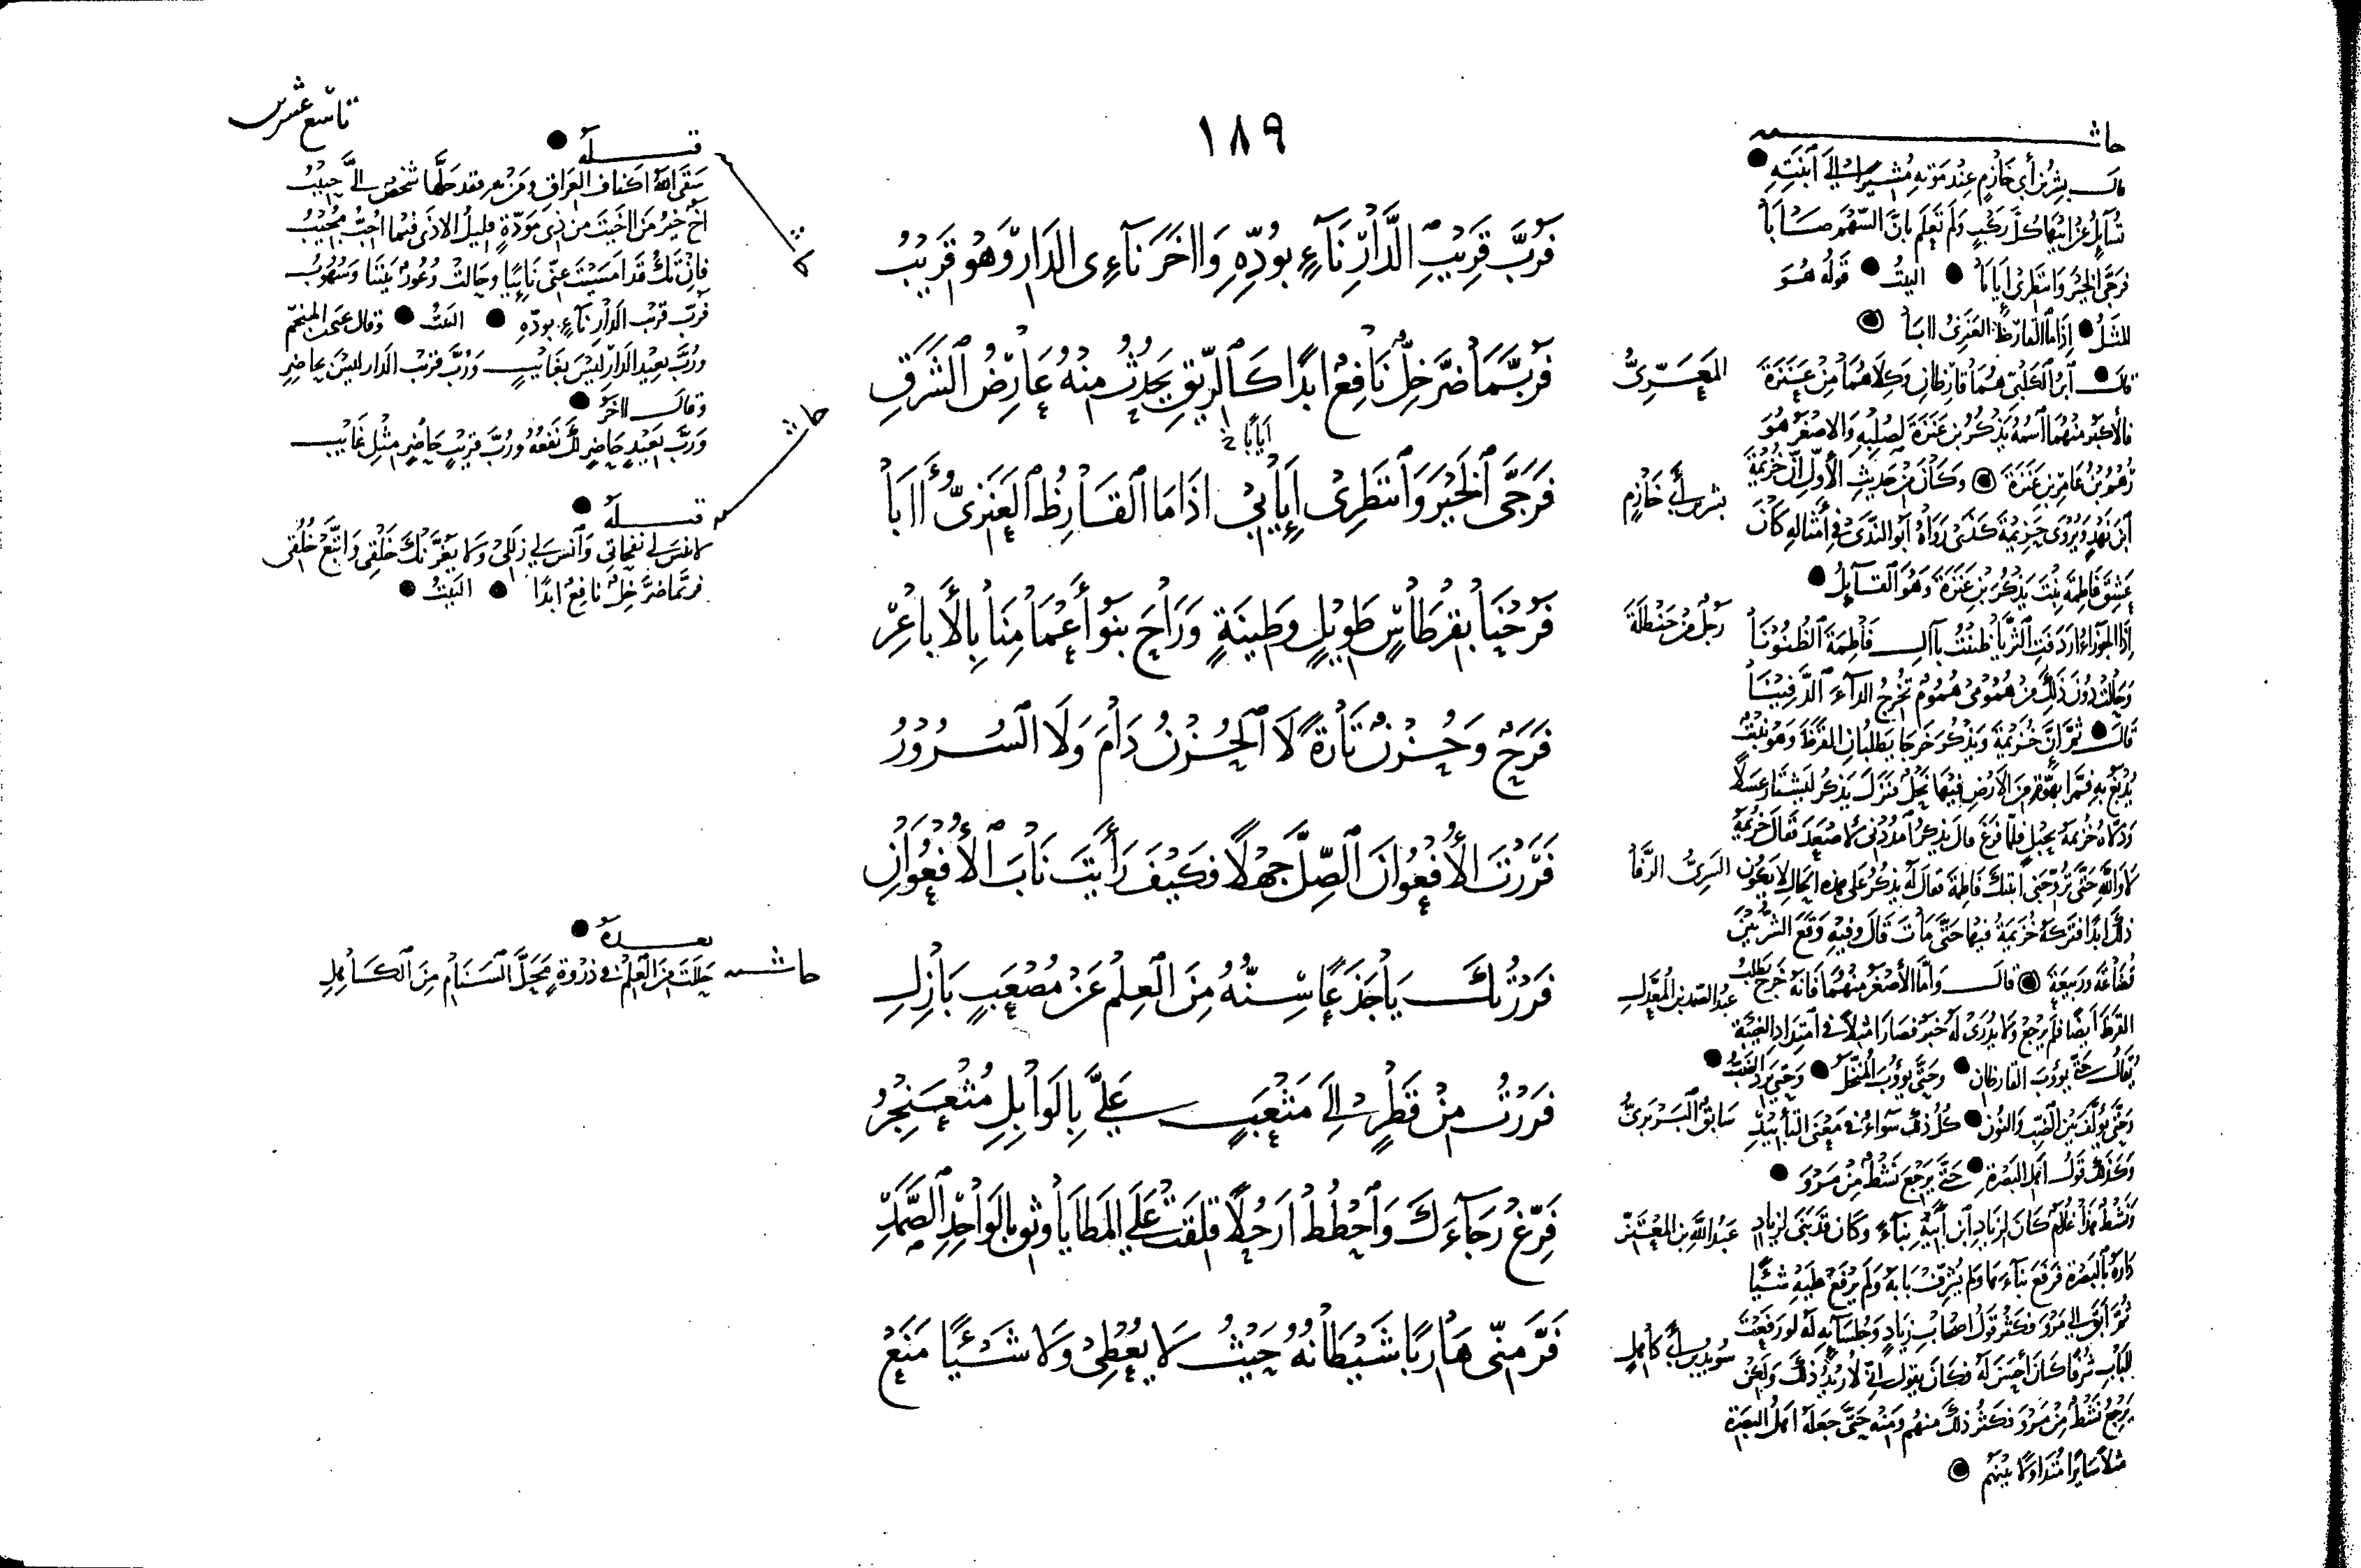 ١٨٩
تاسع عشر
فَرُبَّ قَرِيْبِ الدَّارِ نَآءٍ بِوُدِّهِ وَاخَرَ نآءِى الدَارِ وَهُو قَرِيْبُ
المَعَرِّىُّ
فَرُبَّمَا ضَرَّ خِلٌّ نَافِعٌ ابدًا كَالرِّيْقِ يَحْدُثُ مِنْهُ عَارِضُ الشَّرَقِ
بشر بن أبى خازم
فَرَجِّى الْخَيْرَ وَانْتَظِرِىْ إِيَابِيْ اذَا مَا القَارِظُ العَنَزِىُّ اابَا
رجل من حنظلة
فَرُحْنَا بِقِرْطَاسٍ طَوِيْلٍ وَطِيْنَةٍ وَرَاحَ بَنُو أَعْمَامِنَا بِالأَبَاعِرْ
فَرَحٌ وَحُزْنٌ تَارَةً لَا الْحُزْنُ دَامَ وَلَا السُرُوْرُ
السرى الرفا
فَرَرْتَ الأُفْعُوَانَ الصِّلَّ جَهْلًا فكَيْفَ رَأَيْتَ نَابَ الأُفْعُوَانِ
عبد الصمد بن المعذل
فَرَرْتُكَ يَاجَذَعًا سِنُّهُ مِنَ العِلْمِ عَنْ مُصْعَبٍ بَازِلِ
سابق البربرى
فَرَرْتُ مِنْ قَطْرٍ إلَى مَثْعَبٍ عَلَيَّ بِالوَابِلِ مُثْعَنْجِرُ
عبد الله بن المعتز
فَرِّغْ رَجَآءَكَ وَاحْطُطْ ارْحُلًا قلِقَتْ عَلَى المَطَايَا وثِق بالوَاحِدِ الصَّمَدِ
سويد بن أبى كاهل
فَرَّ مِنّى هَارِبًا شَيْطَانُهُ حَيْثُ لَا يُعْطِىْ وَلَا شَيْئًا مَنَعْ
حاشية
قال بشر بن أبى خازم عند موته مشيرا إلى ابنته
تسآئل عن ابيها كل ركب ولم تعلم بان السهم صابا
فرجى الخير وانتظرى ايابا البيت قوله هو
المثل اذا ما القارظ العنزى اابا
قال ابن الكلبى هما قارظان وكلاهما من عنزة
فالأكبر منهما اسمه يذكر بن عنزة لصلبه والاصغر هو
رهم بن عامر بن عنزة وكان من حديث الأول ان خزيمة
ابن نهد ويروى حزيمة كذى رواه ابو الندى فى أمثاله كان
عشق فاطمة بنت يذكر بن عنزة وهو القآئل
إذا الجوزاء اردفت الثريا ظننت بآل فاطمة الظنونا
وحالت دون ذلك من همومى هموم تخرج الدآء الدفينا
قال ثم ان خزيمة ويذكر خرجا يطلبان القرظ
يدبغ به فمرا بهوة من الارض فيها نحل فنزل يذكر ليشتار عسلا
ودلاه خزيمة بحبل فلما فرغ قال يذكر امددنى لاصعد فقال خزيمة
لا والله حتى تزوجنى ابنتك فاطمة فقال له يذكر على هذه الحال لا يكون
ذلك ابدا فتركه خزيمة فيها حتى مات قال وفيه وقع الشر بين
قضاعة وربيعة قال وأما الأصغر منهما فانه خرج يطلب
القرظ ايضا فلم يرجع ولا يدرى له خبر فصارا مثلا فى امتداد الغيبة
يقال حتى يؤوب القارظان وحتى يؤوب المنخل
وحتى يؤلف بين الضب والنون كل ذلك سوآء فى معنى التأبيد
وكذلك قول اهل البصرة حتى يرجع نشط من مرو
ونشط هذا غلام كان لزياد ابن ابيه بنآء وكان قد بنى لزياد
داره بالبصرة
ثم أبق إلى مرو فكثر قول اصحاب زياد وجلسآئه له لو رفعت
للباب شرفا كان أحسن له فكان يقول
يرجع نشط من مرو فكثر ذلك منهم ومنه حتى جعله اهل البصرة
مثلا سائرا متداولا بينهم
قبله
سقى الله اكناف العراق ومن به فقد حلها شخص الى حبيب
اخ خير من ااخيت من ذى مودة قليل الاذى فيما احب مجيب
فان تك قد امسيت عنى نائيا وحالت وعور بيننا وسهوب
فرب قريب الدار نآء بوده البيت
ورب بعيد الدار ليس بغائب ورب قريب الدار ليس بحاضر
وقال ااخر
ورب بعيد حاضر لك نفعه ورب قريب حاضر مثل غائب
حاشية
قبله
ولا يغرنك خلقى واتبع خلقى
فربما ضر خل نافع ابدا البيت
بعده
حاشية حللت من العلم فى ذروة محل السنام من الكاهل